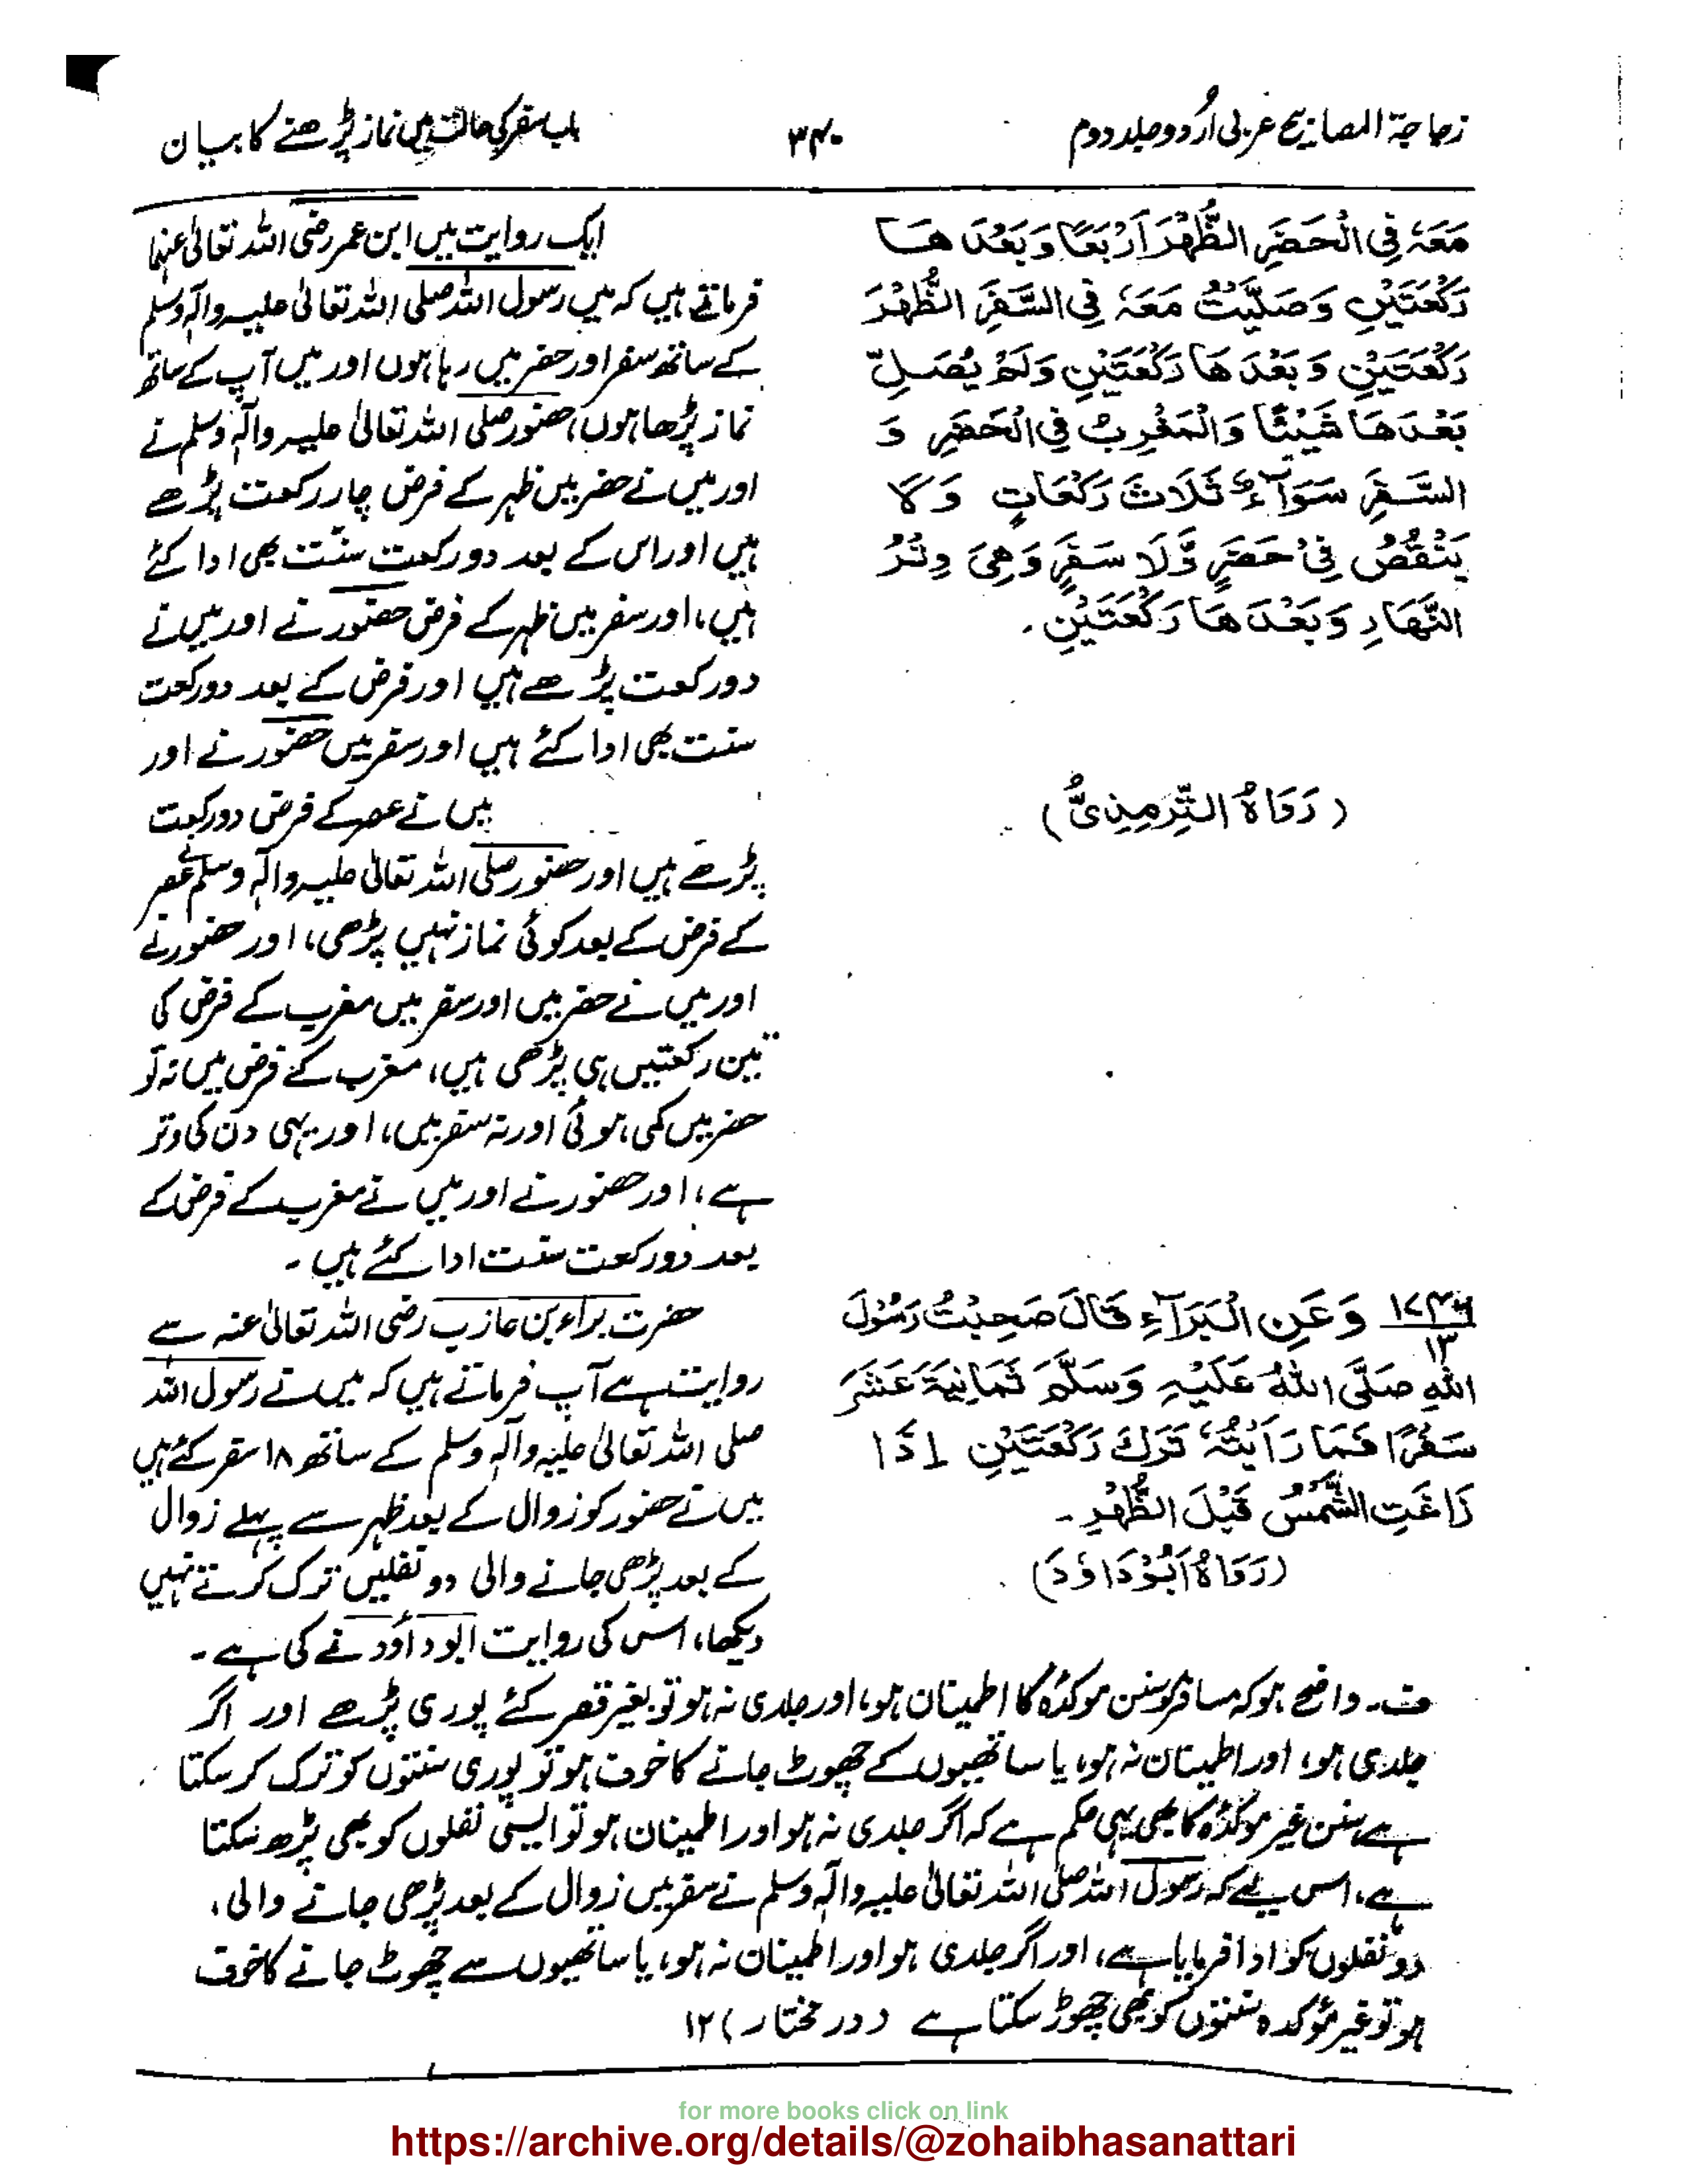 زجاجۃ المصابیح عربی اُردو جلد دوم
۳۴۰
باب سفر کی حالت میں نماز پڑھنے کا بیان
مَعَهٗ فِی الْحَضَرِ الظُّهْرَ اَرْبَعًا وَبَعْدَ هَا
رَكْعَتَيْنِ وَصَلَّيْتُ مَعَهٗ فِی السَّفَرِ الظُّهْرَ
رَكْعَتَيْنِ وَ بَعْدَ هَا رَكْعَتَيْنِ وَلَمْ يُصَلِّ
بَعْدَ هَا شَيْئًا وَالْمَغْرِبُ فِی الْحَضَرِ وَ
السَّفَرِ سَوَآءٌ ثَلَاثَ رَكْعَاتٍ وَ لَا
يَنْقُصُ فِیْ حَضَرٍ وَّلَا سَفَرٍ وَهِیَ وِتْرُ
النَّهَارِ وَبَعْدَ هَا رَكْعَتَيْنِ ۔
(رَوَاهُ التِّرْمِذِیُّ)
ایک روایت میں ابن عمر رضی اللہ تعالیٰ عنہما
فرماتے ہیں کہ میں رسول اللہ صلی اللہ تعالیٰ علیہ وآلہٖ وسلم
کے ساتھ سفر اور حضر میں رہا ہوں اور میں آپ کے ساتھ
نماز پڑھا ہوں، حضور صلی اللہ تعالیٰ علیہ وآلہٖ وسلم نے
اور میں نے حضر میں ظہر کے فرض چار رکعت پڑھے
ہیں اور اس کے بعد دو رکعت سنّت بھی ادا کئے
ہیں، اور سفر میں ظہر کے فرض حضور نے اور میں نے
دو رکعت پڑھے ہیں اور فرض کے بعد دو رکعت
سنت بھی ادا کئے ہیں اور سفر میں حضور نے اور
میں نے عصر کے فرض دو رکعت
پڑھے ہیں اور حضور صلی اللہ تعالیٰ علیہ وآلہٖ وسلم نے عصر
کے فرض کے بعد کوئی نماز نہیں پڑھی، اور حضور نے
اور میں نے حضر میں اور سفر میں مغرب کے فرض کی
تین رکعتیں ہی پڑھی ہیں، مغرب کے فرض میں نہ تو
حضر میں کمی ہوئی اور نہ سفر میں، اور یہی دن کی وتر
ہے، اور حضور نے اور میں نے مغرب کے فرض کے
بعد دو رکعت سنت ادا کئے ہیں ۔
۱۷۴۶
۱۳
وَعَنِ الْبَرَآءِ قَالَ صَحِبْتُ رَسُوْلَ
اللهِ صَلَّی اللهُ عَلَيْهِ وَسَلَّمَ ثَمَانِيَةَ عَشَرَ
سَفْرًا فَمَا رَاَيْتُهٗ تَرَكَ رَكْعَتَيْنِ اِذَا
زَاغَتِ الشَّمْسُ قَبْلَ الظُّهْرِ ۔
(رَوَاهُ اَبُوْ دَاوٗدَ)
حضرت براء بن عازب رضی اللہ تعالیٰ عنہ سے
روایت ہے آپ فرماتے ہیں کہ میں نے رسول اللہ
صلی اللہ تعالیٰ علیہ وآلہٖ وسلم کے ساتھ ۱۸ سفر کئے ہیں
میں نے حضور کو زوال کے بعد ظہر سے پہلے زوال
کے بعد پڑھی جانے والی دو نفلیں ترک کرتے نہیں
دیکھا، اس کی روایت ابو داؤد نے کی ہے ۔
ف۔ واضح ہو کہ مسافر کو سنن موکدہ کا اطمینان ہو، اور جلدی نہ ہو تو بغیر قصر کئے پوری پڑھے اور اگر
جلدی ہو، اور اطمینان نہ ہو، یا ساتھیوں کے چھوٹ جانے کا خوف ہو تو پوری سنتوں کو ترک کر سکتا
ہے سنن غیر موکدہ کا بھی یہی حکم ہے کہ اگر جلدی نہ ہو اور اطمینان ہو تو ایسی نفلوں کو بھی پڑھ سکتا
ہے، اس لیے کہ رسول اللہ صلی اللہ تعالیٰ علیہ وآلہٖ وسلم نے سفر میں زوال کے بعد پڑھی جانے والی،
دو نفلوں کو ادا فرمایا ہے، اور اگر جلدی ہو اور اطمینان نہ ہو، یا ساتھیوں سے چھوٹ جانے کا خوف
ہو تو غیر مؤکدہ سنتوں کو بھی چھوڑ سکتا ہے (در مختار) ۱۲
for more books click on link
https://archive.org/details/@zohaibhasanattari